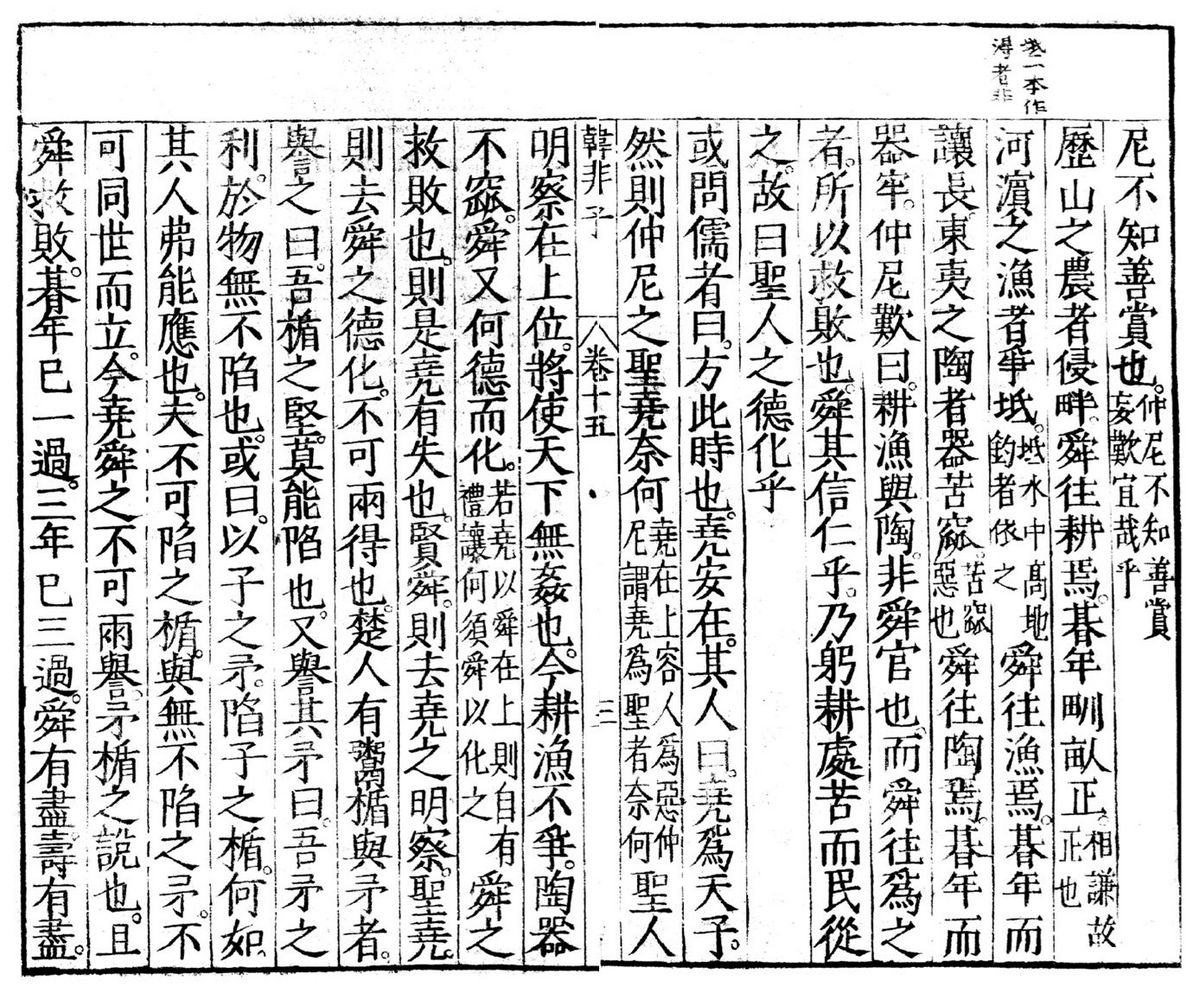 坻一本作
潯者非
尼不知善賞也。仲尼不知善賞妄歎宜哉乎
歷山之農者侵畔。舜往耕焉。朞年甽畝正。相謙故正也
河濵之漁者爭坻。坻水中髙地釣者依之舜往漁焉。朞年而
讓長。東夷之陶者器苦窳。苦窳惡也舜往陶焉。朞年而
器牢。仲尼歎曰。耕漁與陶。非舜官也。而舜往爲之
者。所以救敗也。舜其信仁乎。乃躬耕處苦而民從
之。故曰聖人之德化乎
或問儒者曰。方此時也。堯安在。其人曰。堯爲天子。
然則仲尼之聖堯奈何堯在上容人爲惡仲尼謂堯爲聖者奈何聖人
韓非子 卷十五 三
明察在上位。將使天下無姦也。今耕漁不爭。陶器
不窳。舜又何德而化。若堯以舜在上則自有禮讓何須舜以化之舜之
救敗也。則是堯有失也。賢舜。則去堯之明察。聖堯。
則去舜之德化。不可兩得也。楚人有鬻楯與矛者。
譽之曰。吾楯之堅。莫能陷也。又譽其矛曰。吾矛之
利。於物無不陷也。或曰。以子之矛。陷子之楯。何如。
其人弗能應也。夫不可陷之楯。與無不陷之矛。不
可同世而立。今堯舜之不可兩譽。矛楯之說也。且
舜救敗。朞年已一過。三年已三過。舜有盡。壽有盡。